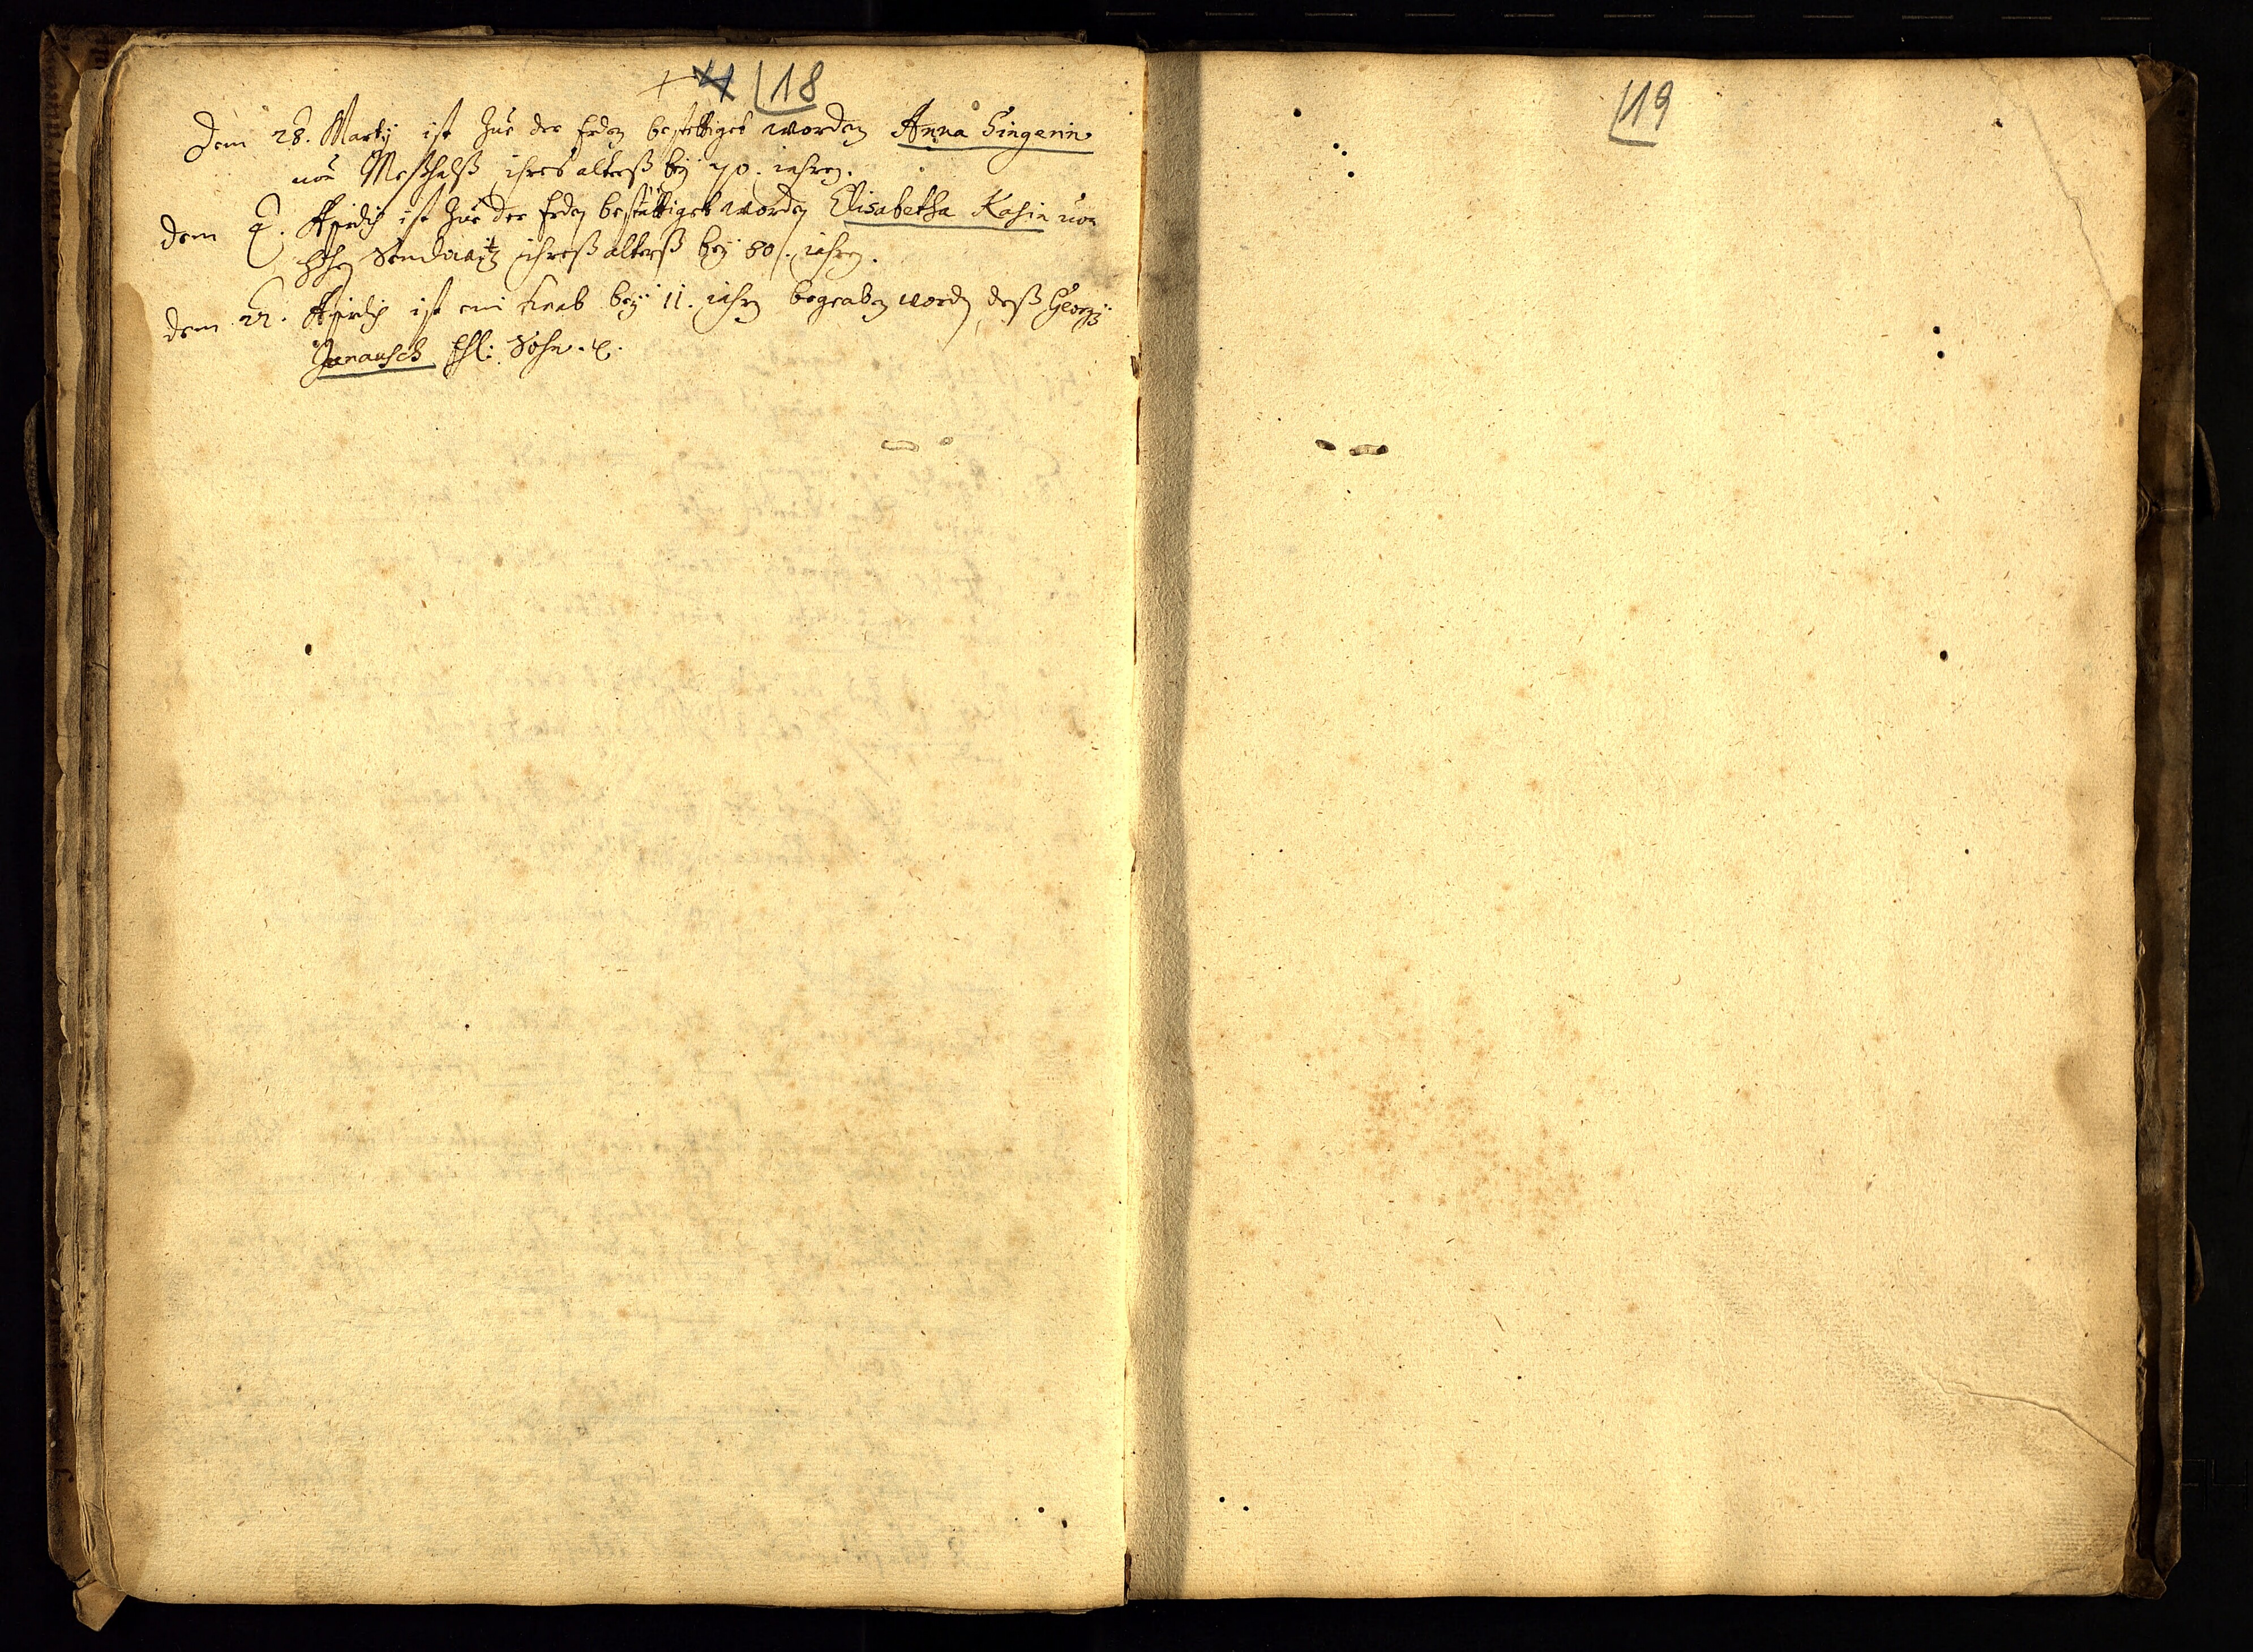 + 4 18
Dem 28. Martij ist Zue der Erden bestettiget worden Anna Singerin
von ihres alterß bey 70. iahren.
dem 2. Aprilis ist Zue der Erden bestättiget worden Elisabetha Kasin von
ihreß alterß bey 80. iahren.
dem 22. Aprilis ist ein knab bey 11. iahren begraben worden, deß Georgij
Janausch Ehl: Sohn. &.
19